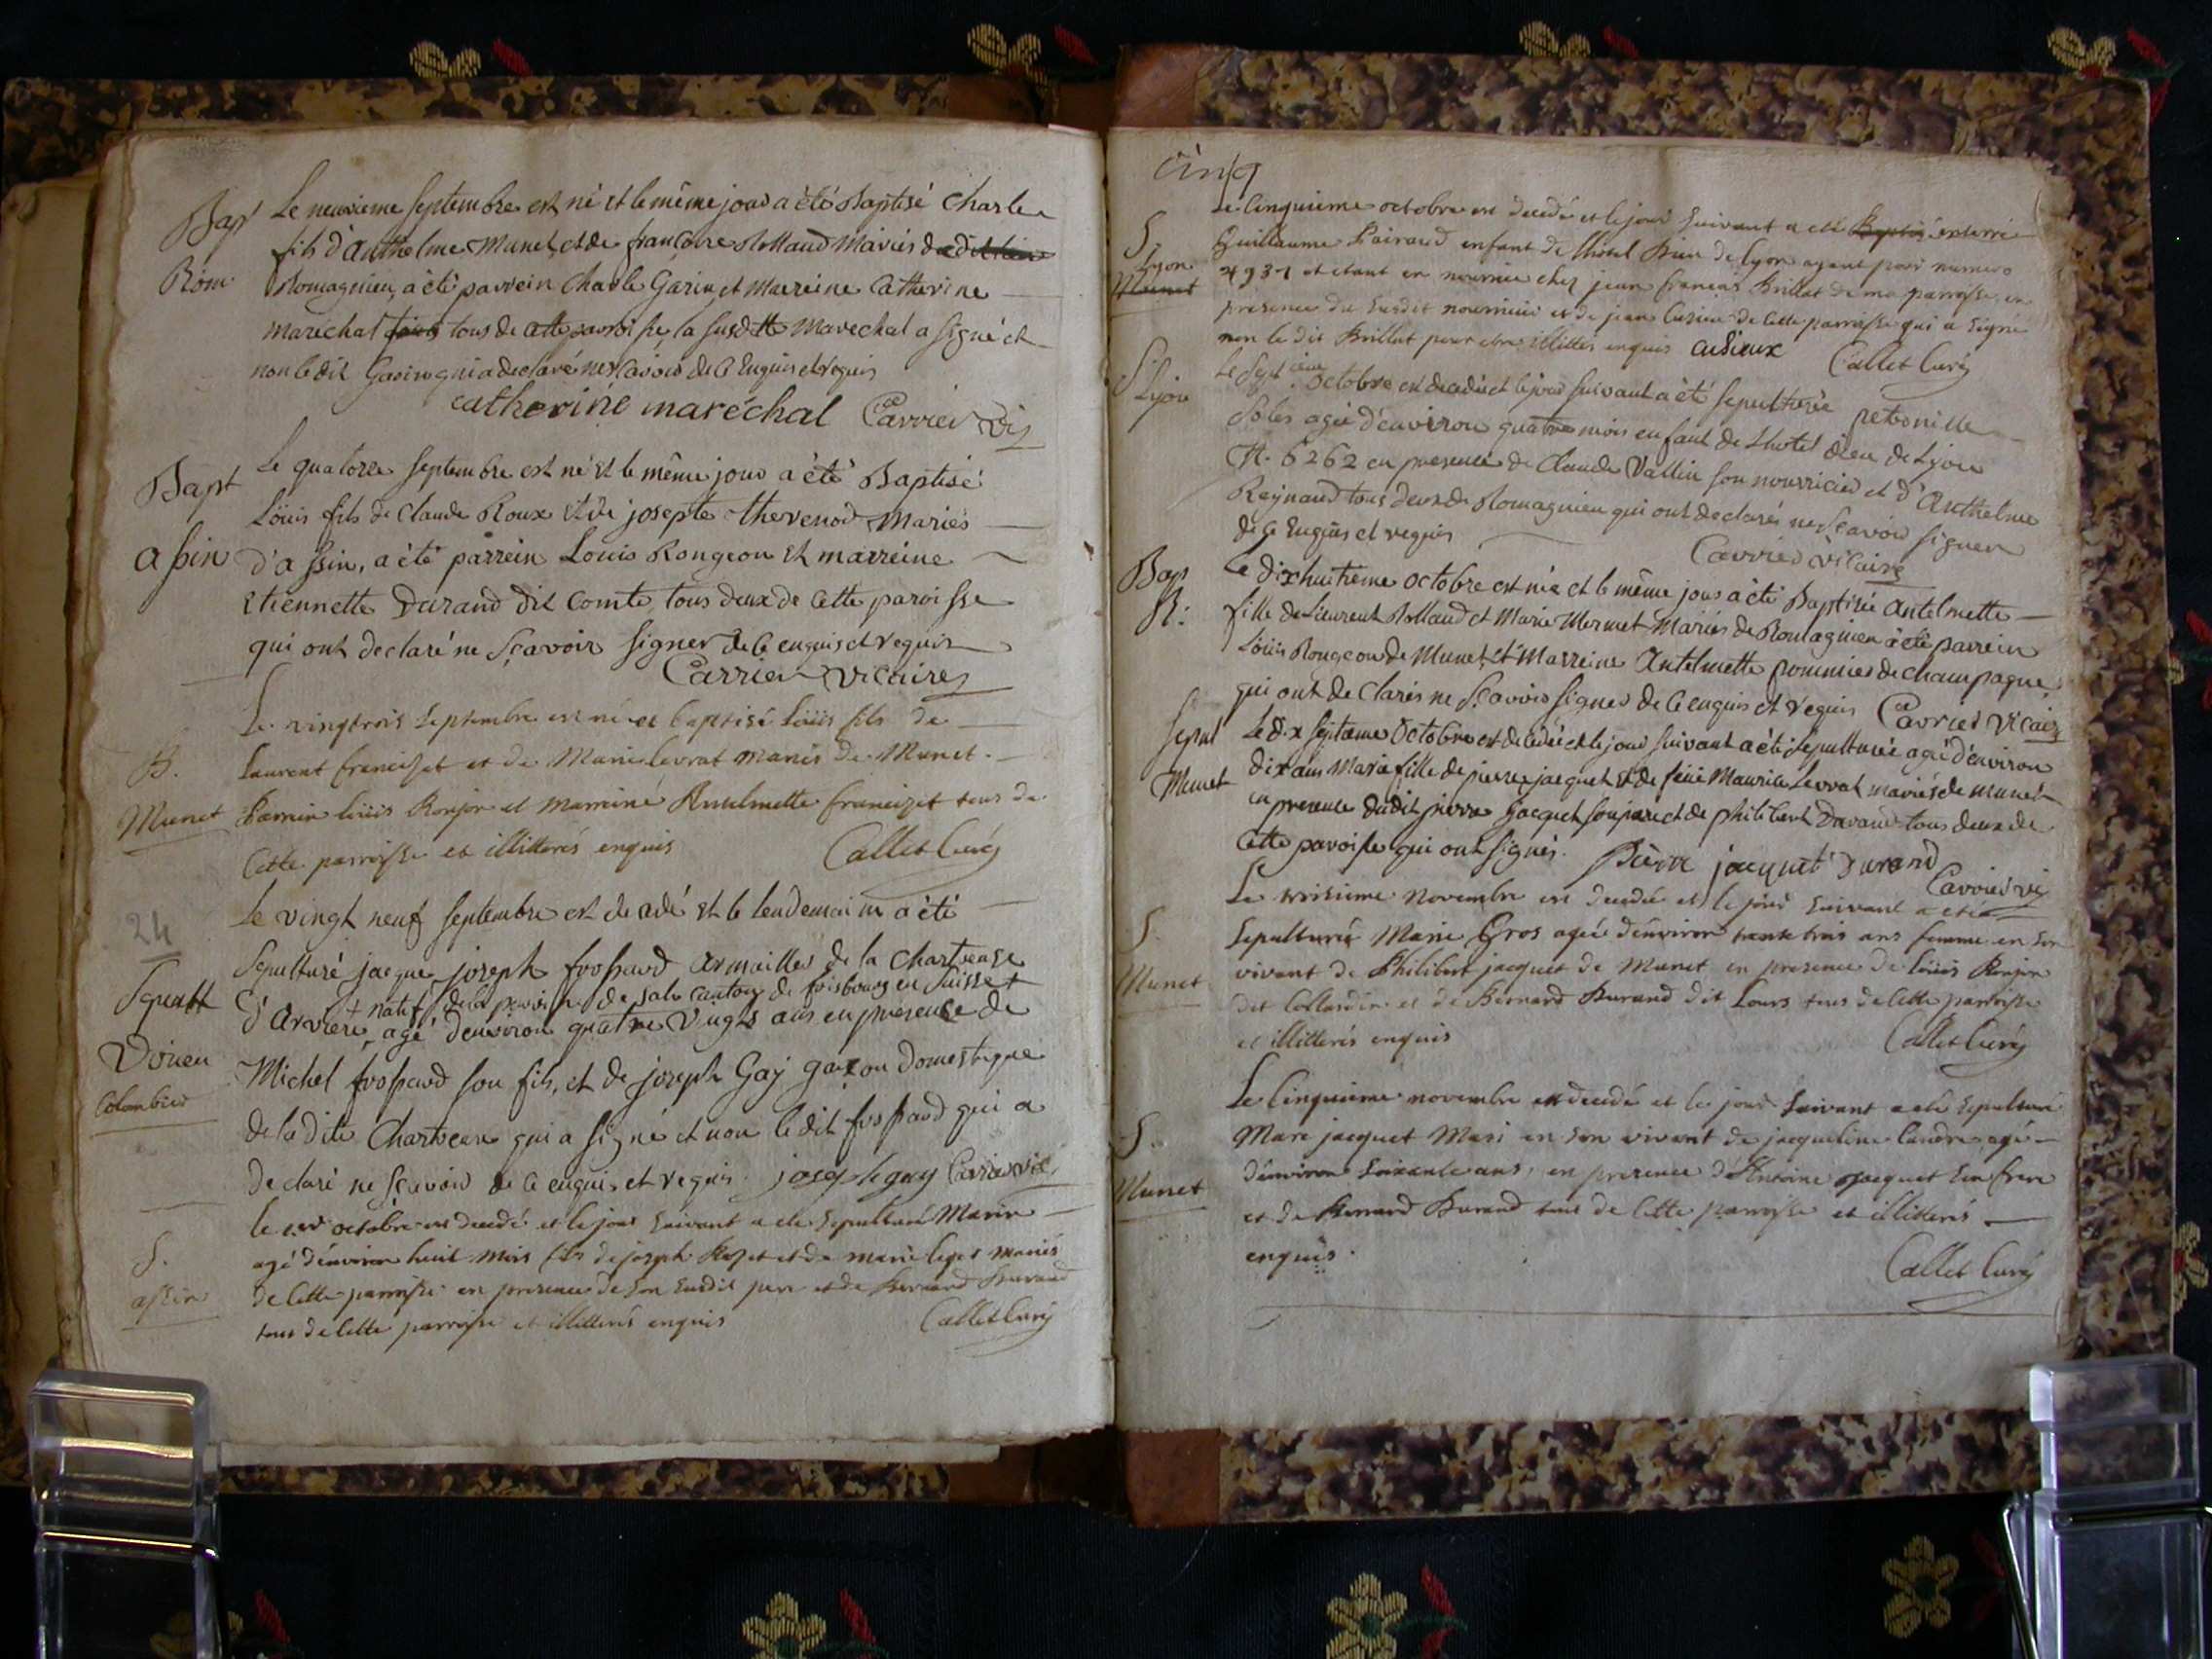 Bap
Rom
Le neuvieme septembre est né et le même jour a été Baptisé Charle
fils d'Anthelme Munet, et de françoise Rolland Mariés
Romagnieu, a été parrein Charle Garin, et Marreine Catherine
maréchal tous de cette paroisse, la susdtte Marechal a signé et
non le dit Garin qui a declaré ne scavoir de ce Enquis et requis
catherine maréchal Carrier Vic
Bapt
assin
Le quatorze septembre est né et le même jour a été Baptisé
Loüis fils de Claude Roux et de josepte thevenod Mariés
d'assin, a été parrein Louis Rongeon et marreine
Etiennette Durand dit Comte, tous deux de cette paroisse
qui ont declaré ne sçavoir signer de ce enquis et requis
Carrier vicaire
B.
Munet
Le vingtrois septembre est né et baptisé Loüis fils de
Laurent francizet et de Marie levrat mariés de Munet.
Parrein loüis Ronjon et marreine Antelmette francizet tous de
Cette parroisse et illitterés enquis
Callet Curé
24
Sepultt
Virieu
Colombier
Le vingt neuf septembre est decedé et le lendemain a été
Sepulturé jacque joseph frossard armailler de la Chartreuse
+ natif de la paroisse de sale canton de frisbourg en suisse +
d'arviere, agé d'environ quatre vingts ans en presence de
Michel frossard son fils, et de joseph Gay garzon Domestique
de la dite Chartreuse qui a signé et non le dit frossard qui a
declaré ne sçavoir de ce enquis et requis. joseph gay Carrier vic
S.
assin
le 1er octobre est decedé et le jour suivant a été sepulturé Marin
agé d'environ huit mois fils de joseph et de marie mariés
de Cette parroisse en presence de son susdit pere et de Bernard Durand
tous de Cette parroisse et illitterés enquis
Callet Curé
cinq
S.
Lyon
Munet
Le Cinquieme octobre est decedé et le jour suivant a été Baptisé enterré
Guillaume enfant de l'hotel Dieu de Lyon ayant pour numero
4937 et etant en nourrice chez jean francois Brillat de ma parroisse, en
presence du susdit nourricier et de jean Cusieu de Cette parroisse qui a signé
non le dit Brillat pour etre illitteré enquis cusieux Callet Curé
S.
Lyon
Le sept ieme octobre est decedée et le jour suivant a été sepulturée petronille
Soles agée d'environ quatre mois enfant de L'hotel dieu de Lyon
N. 6262 en presence de Claude Vallin son nourricier et d'Anthelme
Reynaud tous deux de Romagnieu qui ont declarés ne sçavoir signer
de ce Enquis et requis
Carrier vicaire
Bap
R.
Le dix huitieme octobre est née et le même jour a été Baptisée antelmette
fille de Laurent Rolland et Marie Mermet Mariés de Romagnieu a été parrein
Loüis Rongeon de Munet, et Marreine Antelmette pommier de champagne
qui ont declarés ne sçavoir signer de ce enquis et requis Carrier Vicaire
Sepul
Munet
Le dix septieme octobre est decedée et le jour suivant a été sepulturée agée d'environ
dix ans Marie fille de pierre jacquet et de feüe Maurice Levrat mariés de munet
en presence dudit pierre jacquet son pere et de philibert Durand tous deux de
cette paroisse qui ont signés. Pierre jacquet Durand
Carrier vic
S.
Munet
Le troisieme novembre est decedée et le jour suivant a été
Sepulturée Marie Gros agée d'environ trante trois ans femme en son
vivant de Philibert jacquet de Munet en presence de loüis Ronjon
dit et de Bernard Durand dit Lours tous de Cette parroisse
et illitterés enquis
Callet Curé
S.
Munet
Le Cinquieme novembre est decedé et le jour suivant a été sepulturé
Marc jacquet Mari en son vivant de jacqueline agé
d'environ soixante ans, en presence d'Antoine jacquet son frere
et de Bernard Durand tous de Cette parroisse et illitterés
enquis.
Callet Curé